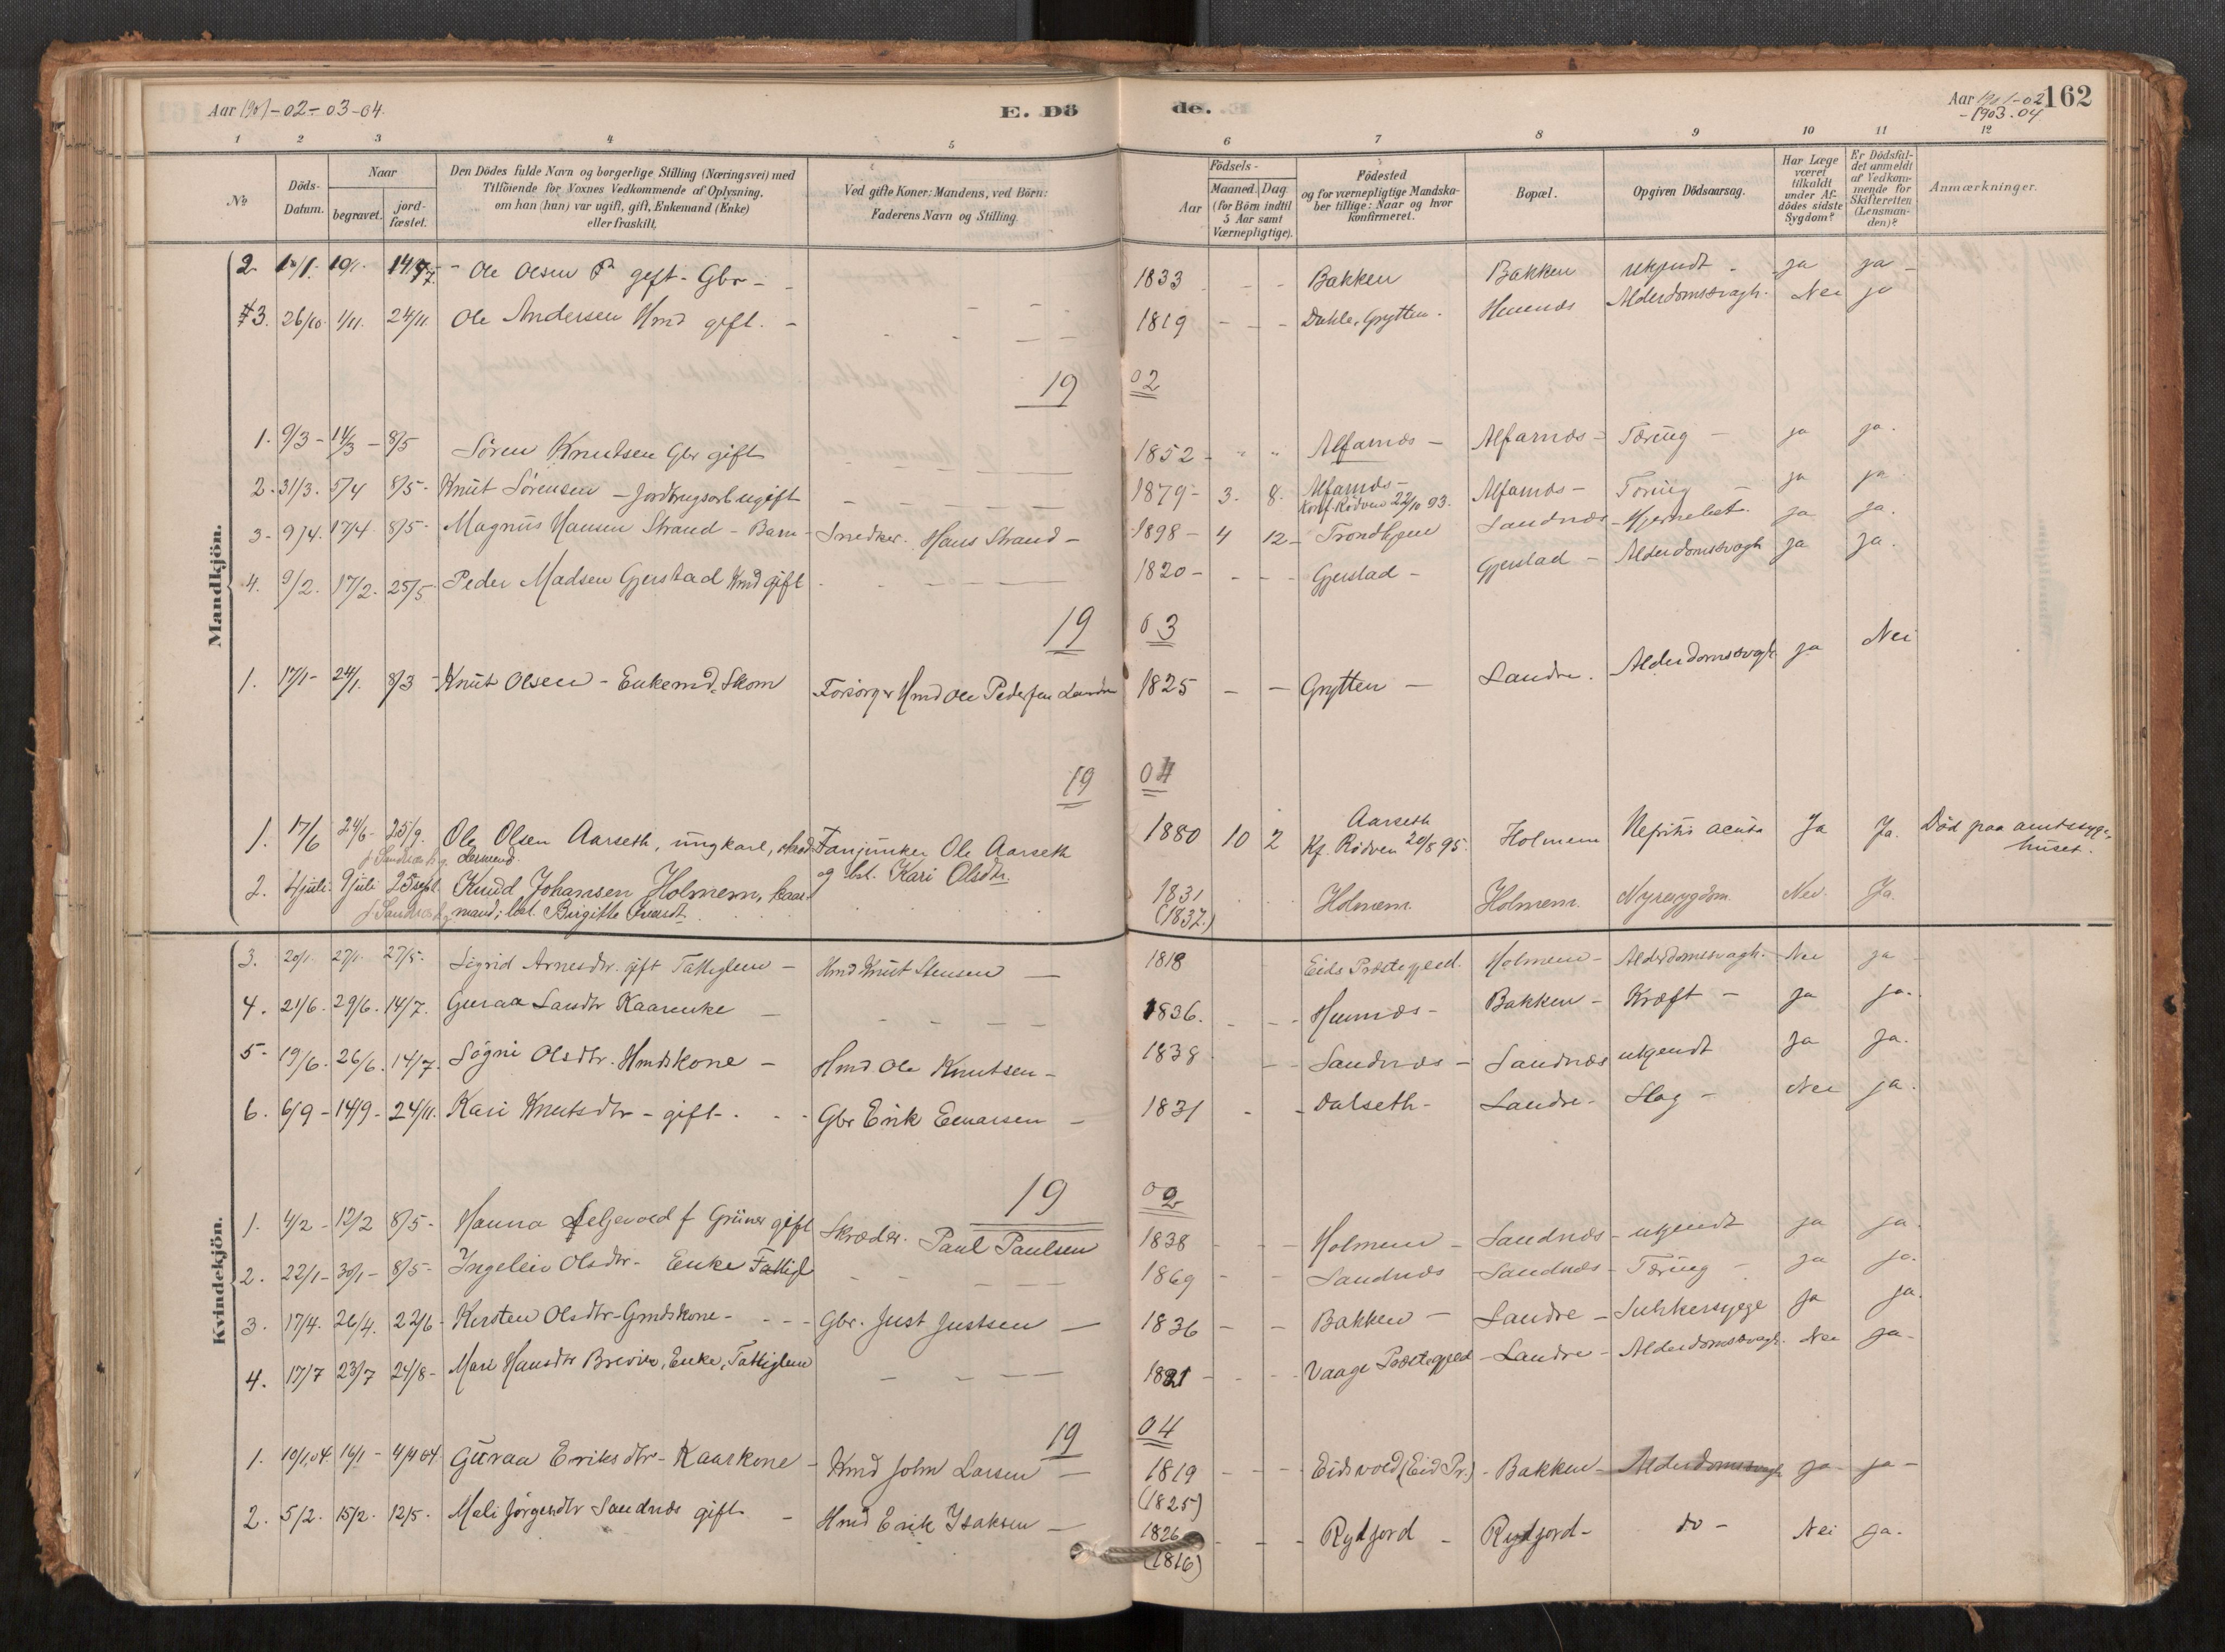 Aar 1901-02-03-04. E. Dö de. Aar 1901-02 162
-1903.04
1 2 3 4 5 6 7 8 9 10 11 12
No Döds-Datum. Naar begravet. jord-fæstet. Den Dödes fulde Navn og borgerlige Stilling (Næringsvei) med Tilföiende for Voxnes Vedkommende af Oplysning, om han (hun) var ugift, gift, Enkemand (Enke) eller fraskilt. Ved gifte Koner: Mandens, ved Börn: Faderens Navn og Stilling. Födsels- Aar Maaned. Dag (for Börn indtil 5 Aar samt Værnepligtige). Födested og for værnepligtige Mandska-ber tillige: Naar og hvor konfirmeret. Bopæl. Opgiven Dödsaarsag. Har Læge været tilkaldt under Af-dödes sidste Sygdom? Er Dödsfal-det anmeldt af Vedkom-mende for Skifteretten (Lensman-den)? Anmærkninger.
Mandkjön.
2. 19/1. 14/7 - Ole Olsen gift - Gbr - 1833 - - Bakken Bakken ukjendt - ja ja -
3. 26/10. 1/11. 24/11. Ole Andersen Kmd gift. - 1819 - - - Dahle, Grytten. Hennæs Alderdomssvagh. Nei ja
19 02
1. 9/3 - 14/3 - 8/5 Sören Knutsen Gbr gift 1852 - " " Alfarnæs - Alfarnæs - Tæring - ja ja.
2. 31/3. 5/4 8/5 - Knut Sörensen - Jordbrugsarb ugift 1879 - 3. 8. Alfarnæs - Konf. Rödven 22/10 93. Alfarnæs - Tæring - ja ja
3. 9/4. 17/4. 8/5 - Magnus Hansen Strand - Barn - Snedker. Hans Strand - 1898 - 4 12 - Trondhjem Sandnæs - Hjernebet. ja ja.
4. 9/2. 17/2. 25/5 - Peder Madsen Gjerstad Kmd gift 1820 - - - - Gjerstad - Gjerstad - Alderdomssvagh ja ja.
19 03
1. 17/1 - 24/1. 8/3 - Knut Olsen - Enkemd. Skom Forsörger Hmd Ole Pedersen Landre 1825 - - Grytten - Landre. Alderdomssvagh ja Nei
19 04
1. 17/6 24/6 - 25/9. Ole Olsen Aarseth, ungkarl, Fanjunker Ole Aarseth 1880 10 2 Aarseth Kf. Rödven 20/8 95. Holmem Nefritis acuta Ja Ja. Död paa amtssyge-
huset.
og hst. Kari Olsdtr.
2. 4 juli. 9 juli 25 sept. Knud Johansen Holmem, kaar- 1831 Holmem. Holmem. Nyresygdom. Nei. Ja.
mand; hst. Birgitte (1837.)
Kvindekjön.
3. 20/1. 27/1. 27/5. Sigrid Arnesdtr. gift Fattiglem - Hmd Knut Stensen - 1818 Eids Præstegjeld. Holmem - Alderdomssvagh. Nei ja
4. 21/6. 29/6. 14/7. Guraa Larsdtr Kaarenke - 1836. - - - Hennæs - Bakken - Kræft - ja ja.
5. 19/6. 26/6. 14/7. Sögni Olsdtr. Hmdskone - Hmd. Ole Knutsen - 1838 - - Sandnæs - Sandnæs ukjendt ja ja.
6. 6/9 - 14/9 - 24/11. Kari Knutsdtr - gift - Gbr Erik Einarsen - 1831 - - Dalseth - Landre - Slag - Nei ja.
19 02
1. 4/2 - 12/2 8/5 - Hanna f Grüner gift Skræder. Paul Paulsen 1838 - - - Holmem - Sandnæs - ukjendt ja ja.
2. 22/1 - 30/1 - 8/5 - Ingelein Olsdtr - Enke Fattigl 1869 - - Sandnæs Sandnæs - Tæring - ja ja.
3. 17/4. 26/4. 22/6 - Kirsten Olsdtr - Gmdskone - - - - Gbr. Just Justsen - 1836 - - Bakken - Landre - Sukkersyge ja ja.
4. 17/7 23/7 24/8 - Mari Hansdtr Brevik, Enke, Fattiglem 1821 - - - Vaage Præstegjeld - Landre - Alderdomssvagh. Nei ja -
19 04
1. 10/1.04. 16/1 - 4/4 04. Guraa Eriksdtr - Kaarkone - Kmd John Larsen - 1819 - - - Eidsvold (Eid Pr.) - Bakken - Alderdomssvagh ja ja -
(1825)
2. 5/2. 15/2. 12/5. Mali Jörgensdtr Sandnæs gift - Hmd Erik Isaksen - 1826 - - - Rydjord - Rydjord - do - Nei ja.
(1816)